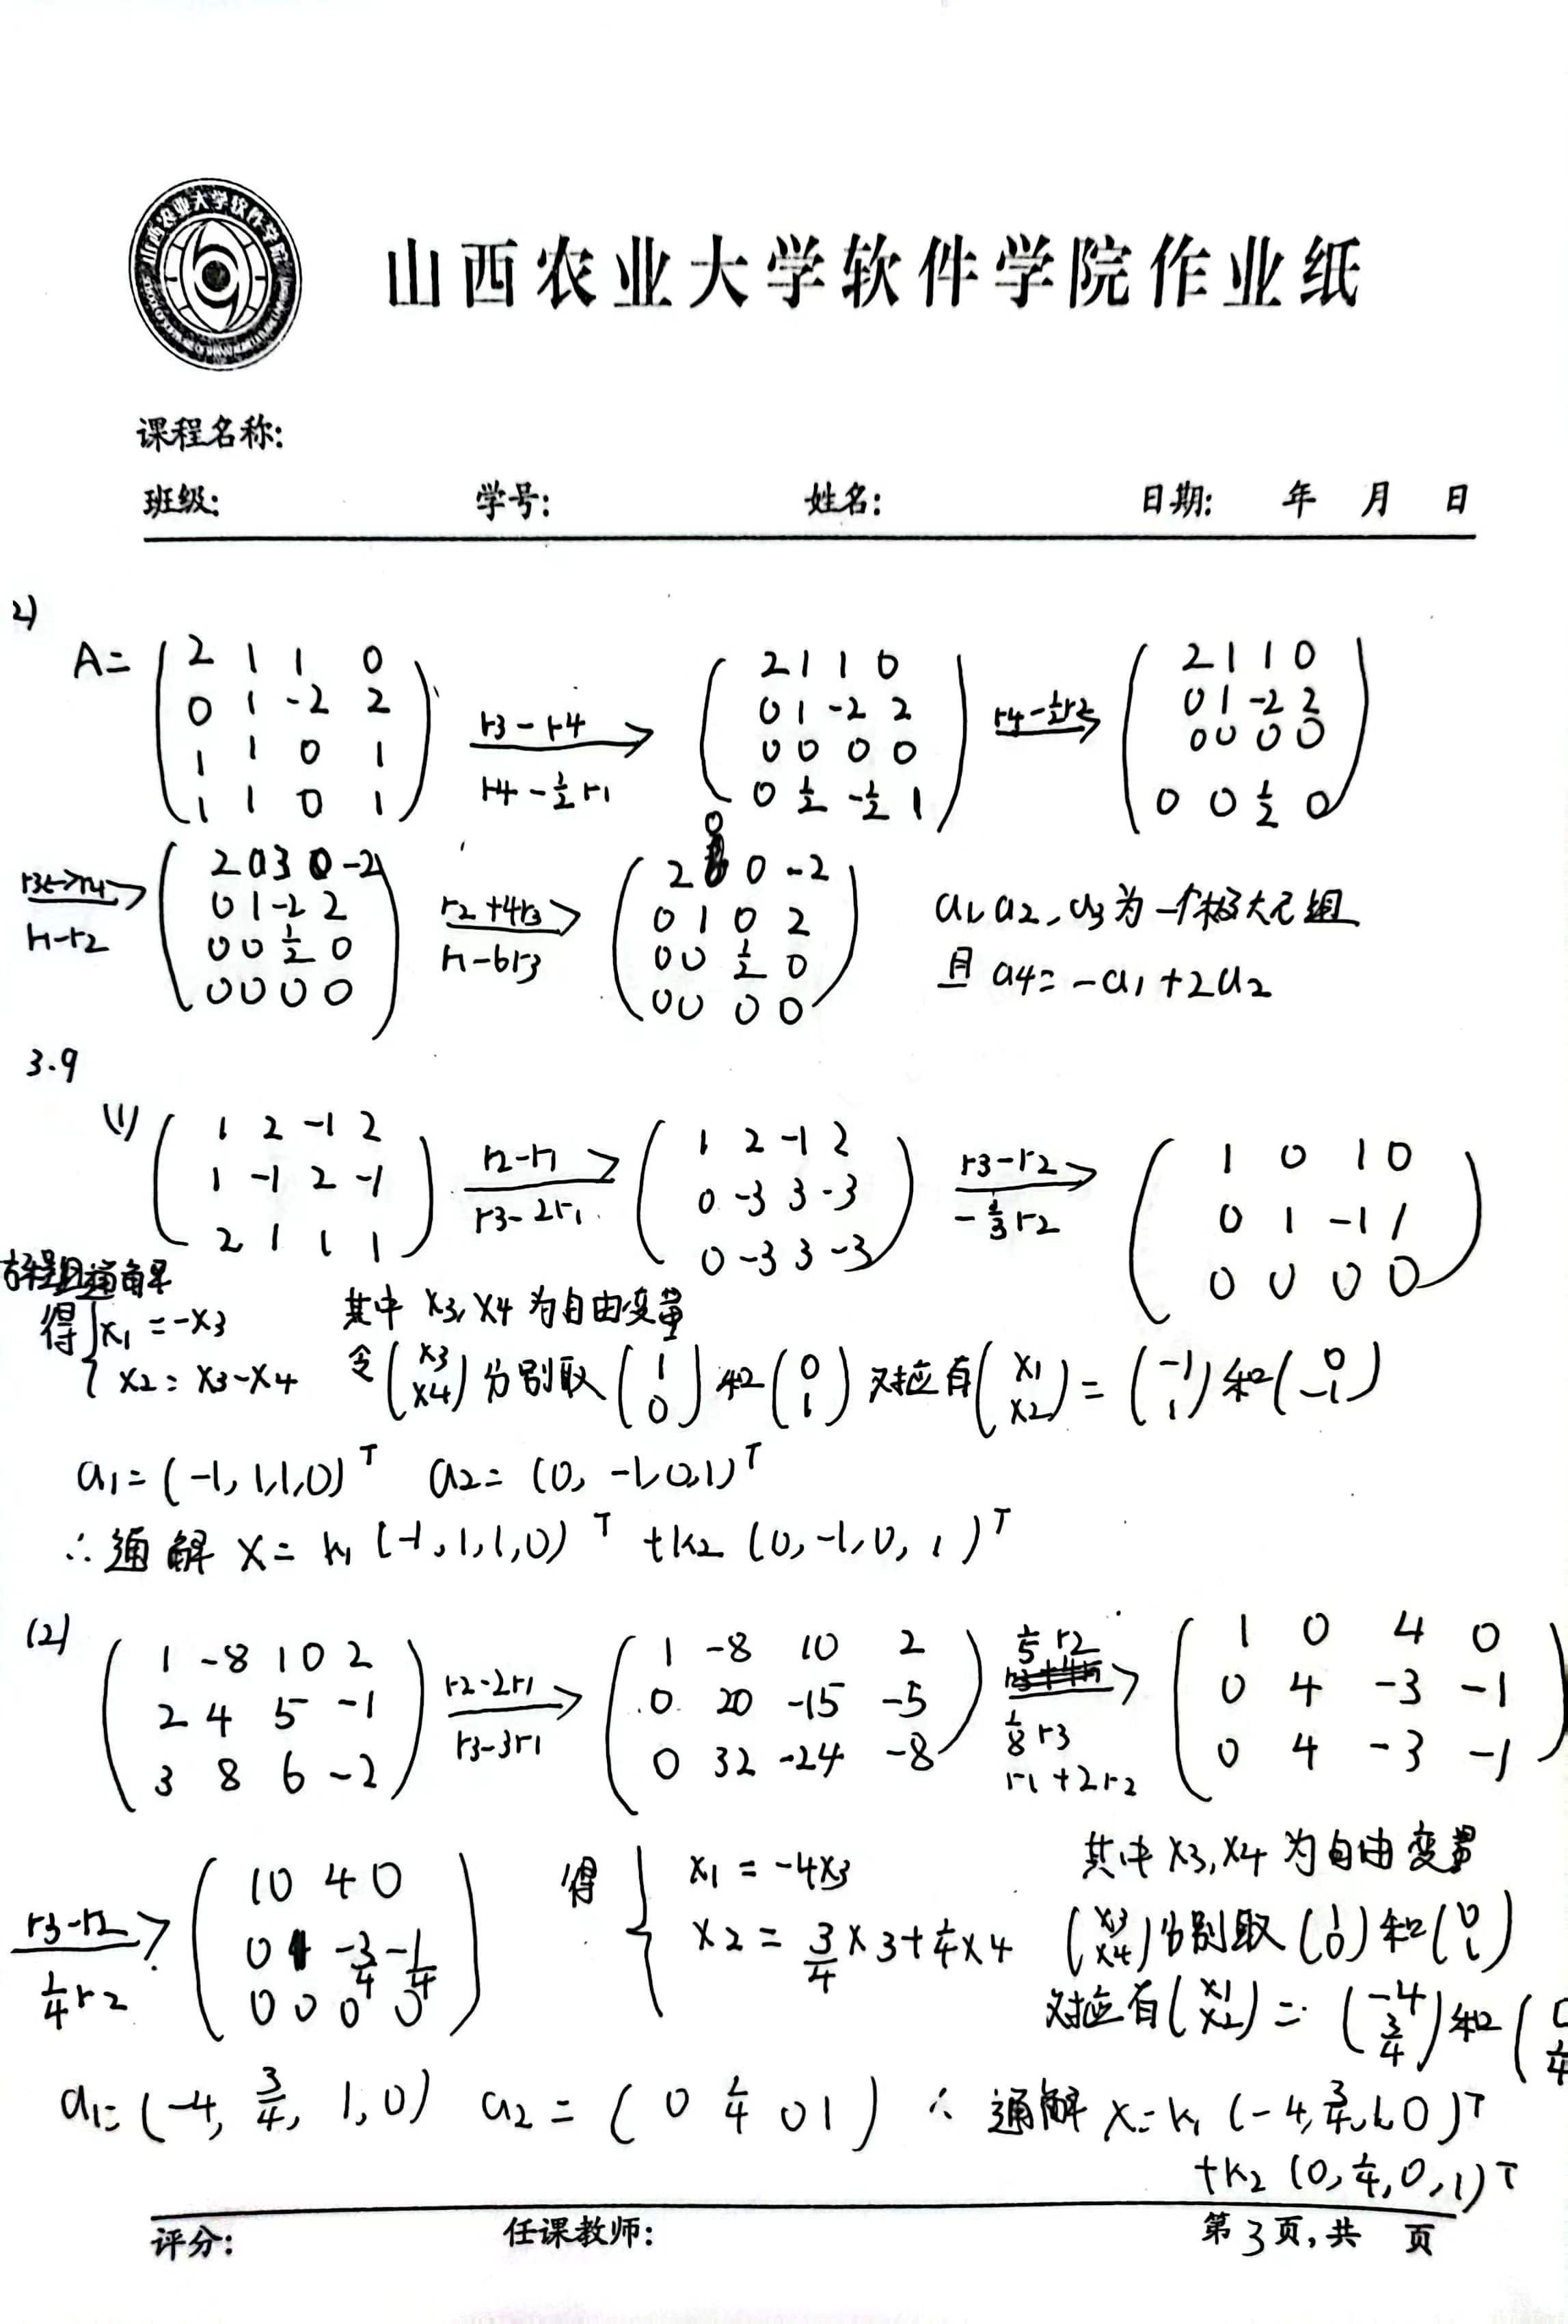 山西农业大学软件学院
山西农业大学软件学院作业纸
课程名称:
班级: 学号: 姓名: 日期: 年 月 日
2)
A= ( 2 1 1 0 ; 0 1 -2 2 ; 1 1 0 1 ; 1 1 0 1 ) r3-r4 r4-½r1 → ( 2 1 1 0 ; 0 1 -2 2 ; 0 0 0 0 ; 0 ½ -½ 1 ) r4-½r2 → ( 2 1 1 0 ; 0 1 -2 2 ; 0 0 0 0 ; 0 0 ½ 0 )
r3↔r4 r1-r2 → ( 2 0 3 -2 ; 0 1 -2 2 ; 0 0 ½ 0 ; 0 0 0 0 ) r2+4r3 r1-6r3 → ( 2 0 0 -2 ; 0 1 0 2 ; 0 0 ½ 0 ; 0 0 0 0 ) a1, a2, a3为一个极大无关组
且 a4= -a1+2a2
3.9
(1) ( 1 2 -1 2 ; 1 -1 2 -1 ; 2 1 1 1 ) r2-r1 r3-2r1 → ( 1 2 -1 2 ; 0 -3 3 -3 ; 0 -3 3 -3 ) r3-r2 -⅓r2 → ( 1 0 1 0 ; 0 1 -1 1 ; 0 0 0 0 )
方程组通解
得 { x1=-x3 其中 x3, x4 为自由变量
x2= x3-x4 令 (x3 x4) 分别取 (1 0) 和 (0 1) 对应有 (x1 x2) = (-1 1) 和 (0 -1)
a1=(-1, 1,1,0)ᵀ a2= (0, -1,0,1)ᵀ
∴ 通解 X= k1 (-1,1,1,0)ᵀ +k2 (0,-1,0,1)ᵀ
(2) ( 1 -8 10 2 ; 2 4 5 -1 ; 3 8 6 -2 ) r2-2r1 r3-3r1 → ( 1 -8 10 2 ; 0 20 -15 -5 ; 0 32 -24 -8 ) ⅕r2 ⅛r3 r1+2r2 → ( 1 0 4 0 ; 0 4 -3 -1 ; 0 4 -3 -1 )
r3-r2 ¼r2 → ( 1 0 4 0 ; 0 1 -¾ -¼ ; 0 0 0 0 ) 得 { x1 = -4x3 其中 x3, x4 为自由变量
x2 = ¾x3+¼x4 (x3 x4) 分别取 (1 0) 和 (0 1)
对应有 (x1 x2) = (-4 ¾) 和 (0 ¼
a1=(-4, ¾, 1,0) a2 = ( 0 ¼ 0 1 ) ∴ 通解 X=k1 (-4,¾,1,0)ᵀ
+k2 (0,¼,0,1)ᵀ
评分: 任课教师: 第3页,共 页